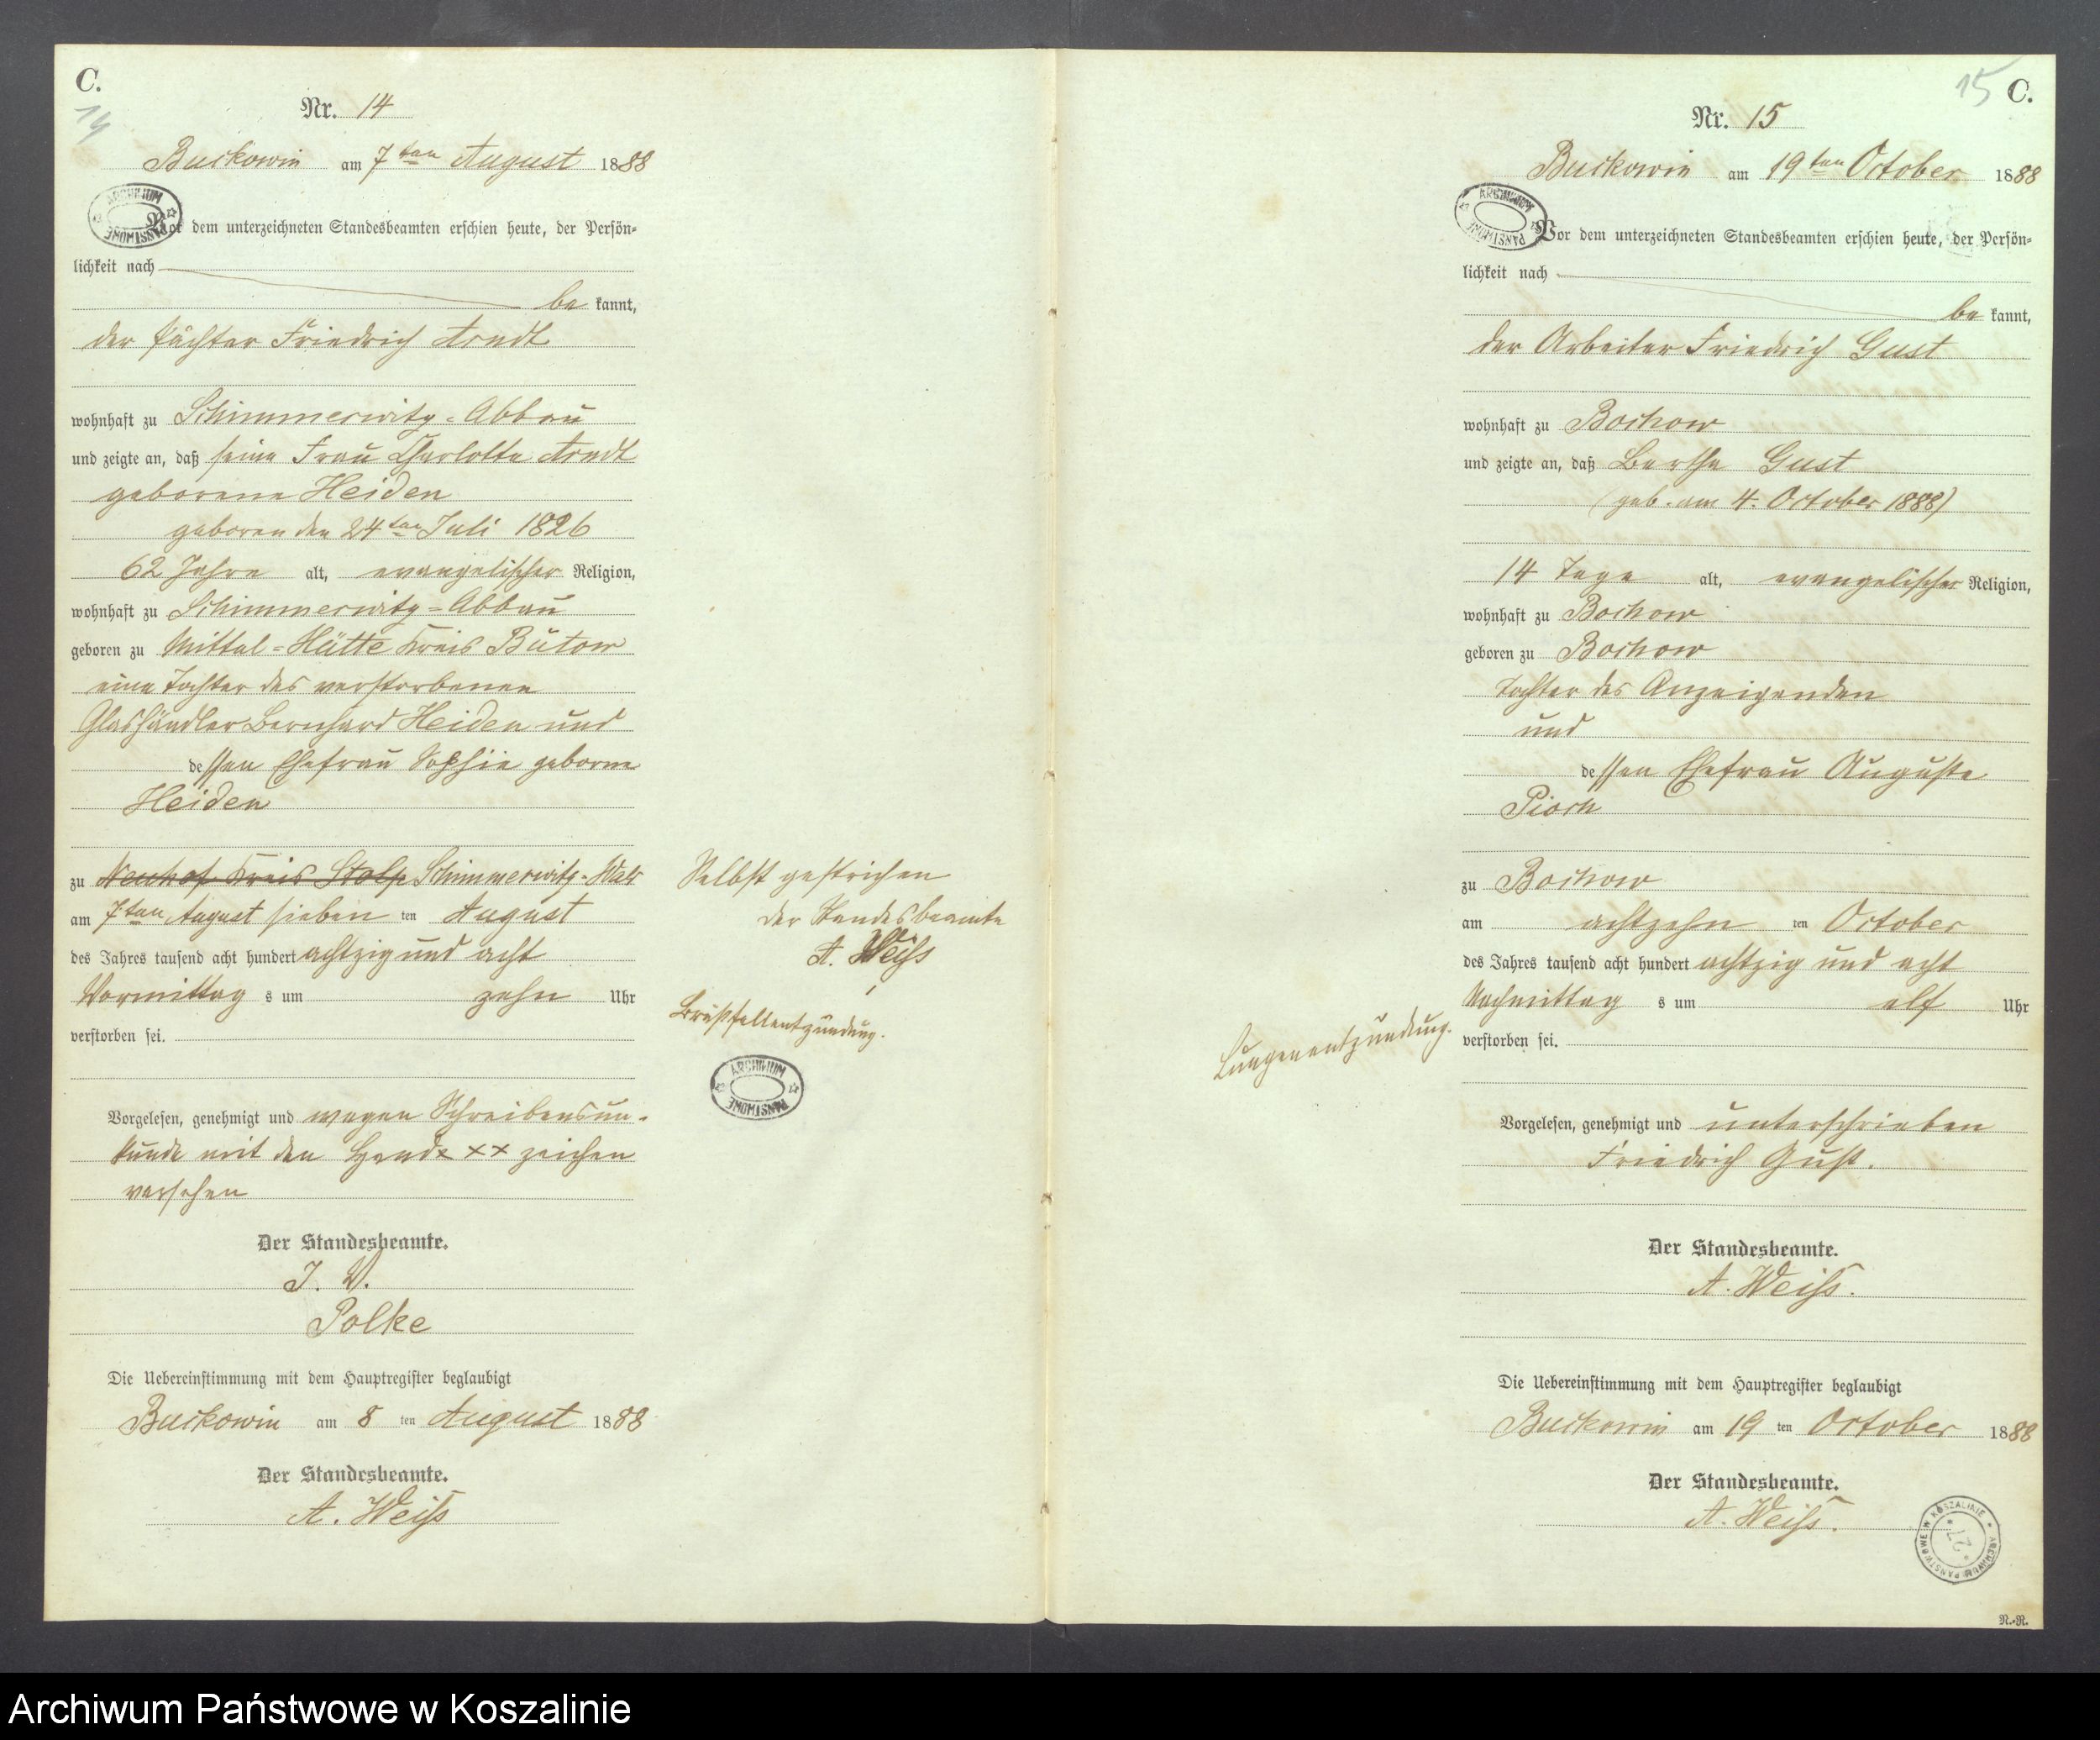 C.
14
Nr. 14
Buckowin am 7ten August 1888
Vor dem unterzeichneten Standesbeamten erschien heute, der Persön-
lichkeit nach
be kannt,
der Pächter Friedrich Arndt
wohnhaft zu Schimmerwitz-Abbau
und zeigte an, daß seine Frau Charlotte Arndt
geborene Heiden
geboren den 24ten Juli 1826
62 Jahre alt, evangelischer Religion,
wohnhaft zu Schimmerwitz-Abbau
geboren zu Mittel-Hütte Kreis Bütow
eine Tochter des verstorbenen
Glashändler Bernhard Heiden und
dessen Ehefrau Sophie geborne
Heiden
zu Neuhof Kreis Stolp Schimmerwitz-
am 7ten August sieben ten August
des Jahres tausend acht hundert achtzig und acht
Vormittag s um zehn Uhr
verstorben sei.
Vorgelesen, genehmigt und wegen Schreibensun-
kunde mit den Hand xx zeichen
versehen
Der Standesbeamte.
I. V.
Polke
Die Uebereinstimmung mit dem Hauptregister beglaubigt
Buckowin am 8 ten August 1888
Der Standesbeamte.
A. Weiß
Selbst gestrichen
der Standesbeamte
A. Weiß
Brustfellentzündung.
ARCHIWUM PAŃSTWOWE
15 C.
Nr. 15
Buckowin am 19ten October 1888
Vor dem unterzeichneten Standesbeamten erschien heute, der Persön-
lichkeit nach
be kannt,
der Arbeiter Friedrich Gust
wohnhaft zu Bochow
und zeigte an, daß Bertha Gust
(geb. am 4. October 1888)
14 Tage alt, evangelischer Religion,
wohnhaft zu Bochow
geboren zu Bochow
Tochter des Anzeigenden
und
dessen Ehefrau Auguste
Pioch
zu Bochow
am achtzehn ten October
des Jahres tausend acht hundert achtzig und acht
Nachmittag s um elf Uhr
verstorben sei.
Lungenentzündung.
Vorgelesen, genehmigt und unterschrieben
Friedrich Gust.
Der Standesbeamte.
A. Weiß.
Die Uebereinstimmung mit dem Hauptregister beglaubigt
Buckowin am 19 ten October 1888
Der Standesbeamte.
A. Weiß.
ARCHIWUM PAŃSTWOWE W KOSZALINIE
27
N.-R.
Archiwum Państwowe w Koszalinie